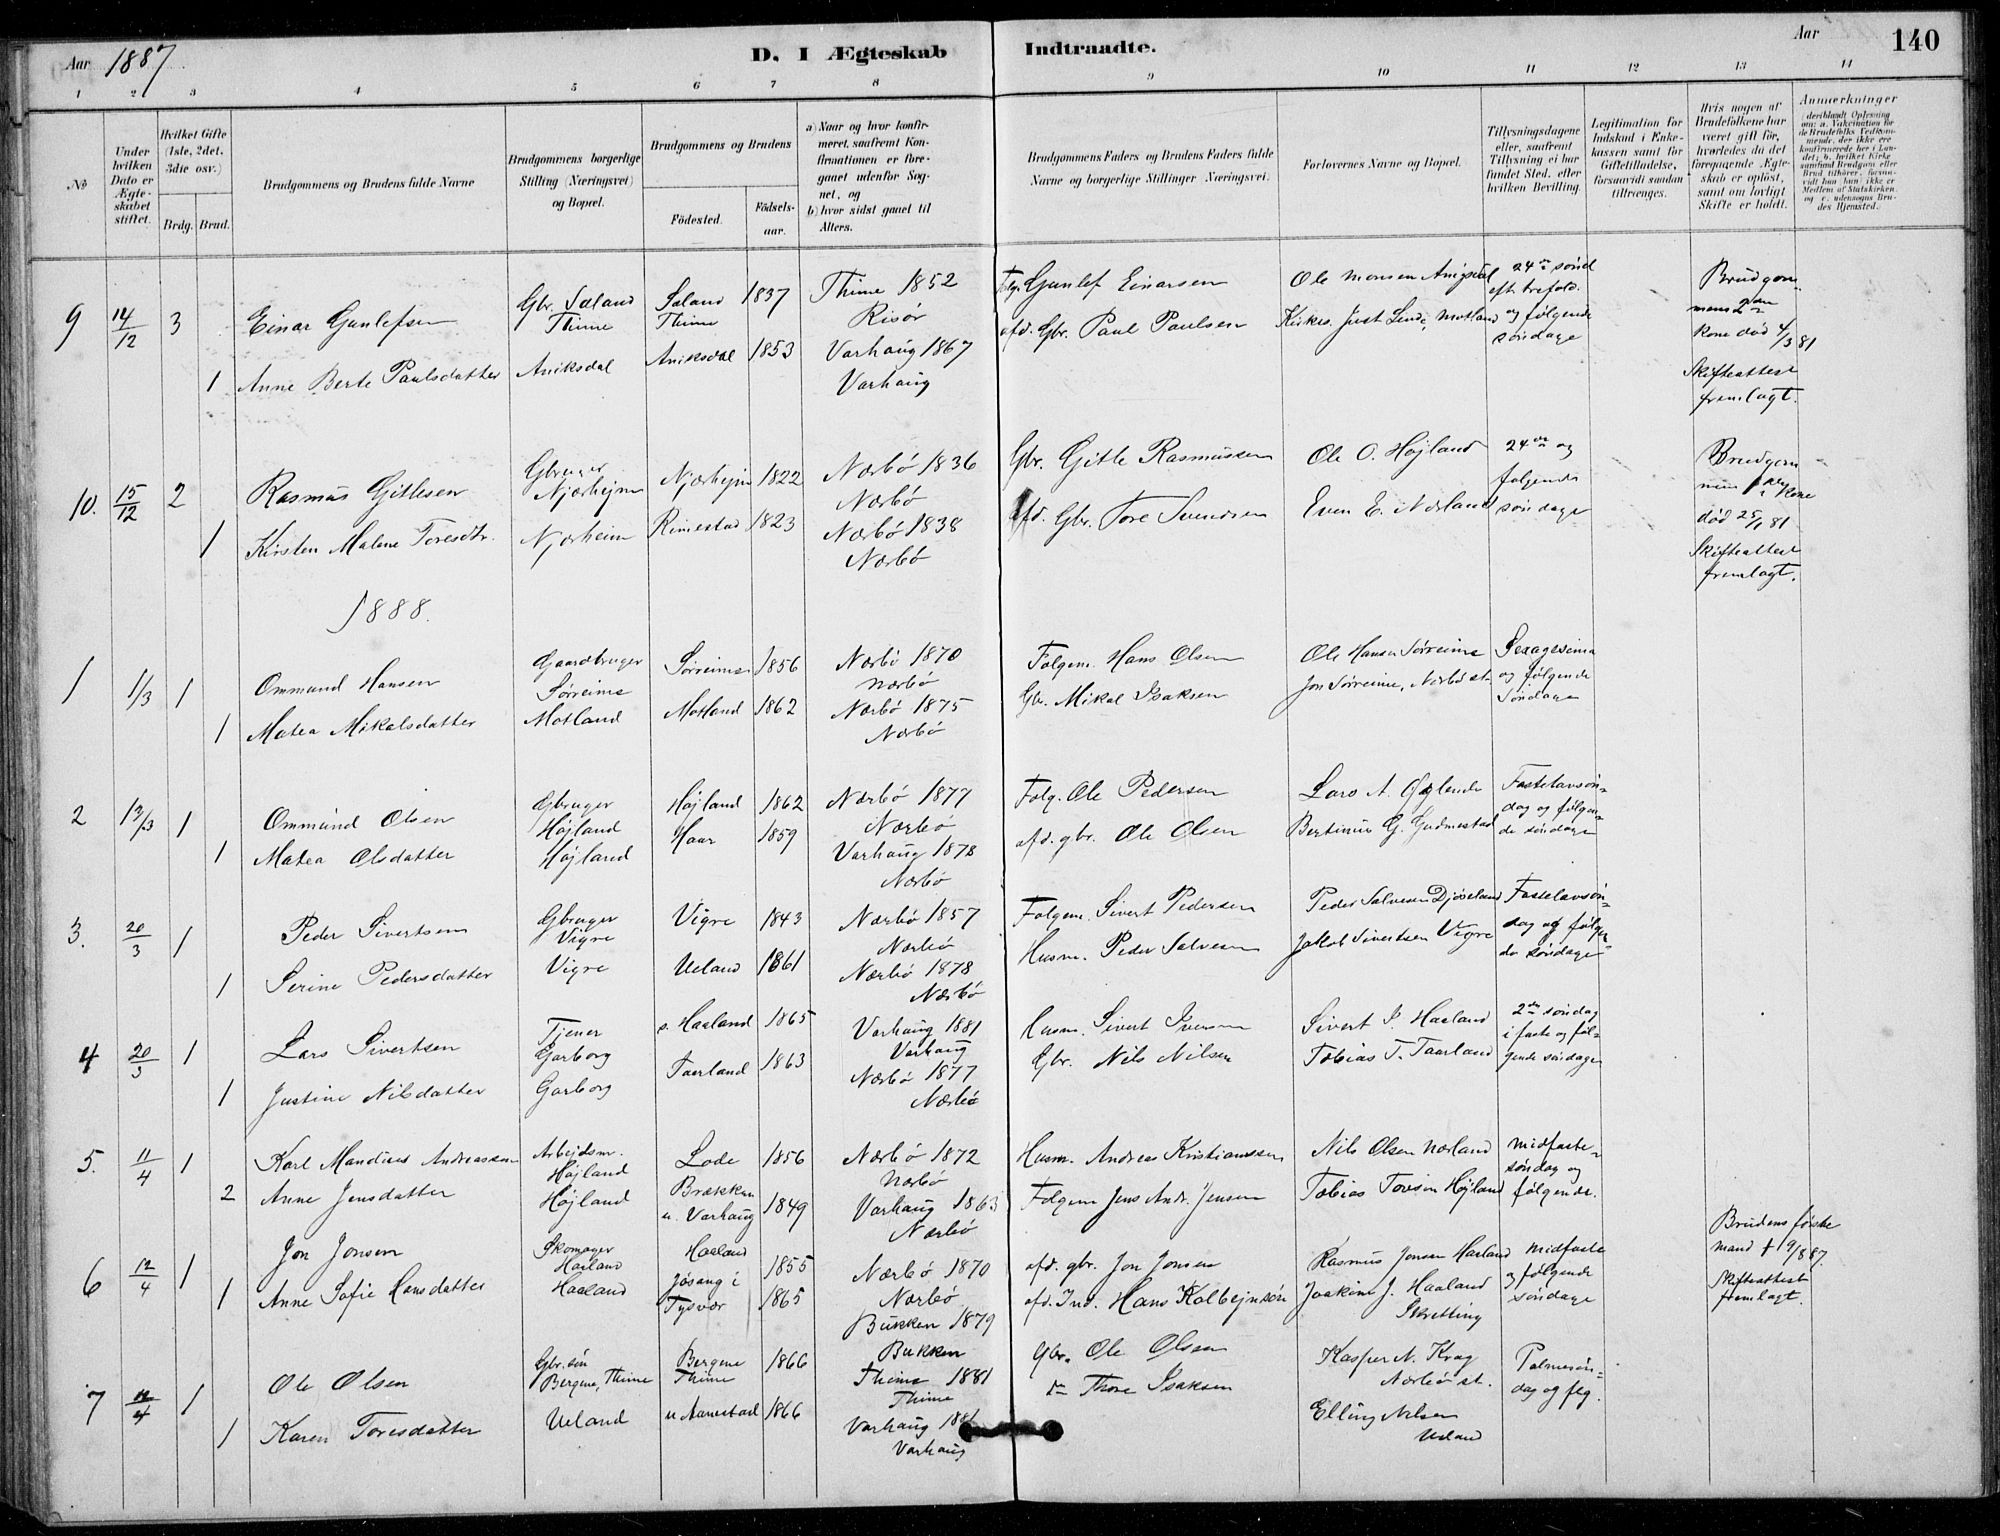 Aar 1887
D. I Ægteskab Indtraadte.
Aar
140
1 2 3 4 5 6 7 8 9 10 11 12 13 14
No
Under hvilken Dato er Ægteskabet stiftet.
Hvilket Gifte (1ste, 2det, 3die osv.)
Brdg. Brud.
Brudgommens og Brudens fulde Navne
Brudgommens borgerlige Stilling (Næringsvei) og Bopæl.
Brudgommens og Brudens
Födested.
Födsels-aar.
a) Naar og hvor konfirmeret, saafremt Konfirmationen er foregaaet udenfor Sognet, og
b) hvor sidst gaaet til Alters.
Brudgommens Faders og Brudens Faders fulde Navne og borgerlige Stillinger (Næringsvei).
Forlovernes Navne og Bopæl.
Tillysningsdagene eller, saafremt Tillysning ei har fundet Sted, efter hvilken Bevilling.
Legitimation for Indskud i Enkekassen samt for Giftetilladelse, forsaavidt saadan tiltrænges.
Hvis nogen af Brudefolkene har været gift för, hvorledes da det foregaaende Ægteskab er oplöst, samt om lovligt Skifte er holdt.
Anmerkninger
9 14/12 3 Einar Gunlefsen Gbr. Sæland Thime Sæland Thime 1837 Thime 1852 Risör Folg. Gunlef Einarsen Ole Monsen 24de sönd eft. trefold. og fölgende söndage Brudgommens 2den kone död 4/3 81 Skifteattest fremlagt.
1 Anne Berte Paulsdatter Aniksdal Aniksdal 1853 Varhaug 1867 Varhaug afd. Gbr. Paul Paulsen Kirkes. Just Lende, Motland
10. 15/12 2 Rasmus Gitlesen Gbruger Njærheim Njærheim 1822 Nærbö 1836 Nærbö Gbr. Gitle Rasmussen Ole O. Höjland 24de og fölgende söndage Brudgommens kone död 25/1 81 Skifteattest fremlagt.
1 Kirsten Malene Toresdtr. Njærheim Rimestad 1823 Nærbö 1838 Nærbö afd. Gbr. Tore Svendsen Even E. Nærland
1888.
1 1/3 1 Ommund Hansen Gaardbruger Sörreime Sörreime 1856 Nærbö 1870 Nærbö Folgem. Hans Olsen Ole Hansen Sörreime Sexagesima og fölgende Söndage
1 Matea Mikalsdatter Motland Motland 1862 Nærbö 1875 Nærbö Gbr. Mikal Isaksen Jon Sörreime, Nærbö st.
2 13/3 1 Ommund Olsen Gbruger Höjland Höjland 1862 Nærbö 1877 Nærbö Folg. Ole Pedersen Lars A. Fastelavsöndag og fölgende söndage
1 Matea Olsdatter Höjland Haar 1859 Varhaug 1878 Nærbö afd. gbr. Ole Olsen Bertinius G. Gudmestad
3. 20/3 1 Peder Sivertsen Gbruger Vigre Vigre 1843 Nærbö 1857 Nærbö Folgem. Sivert Pedersen Peder Salvesen Djösland Fastelavsöndag og fölgende söndage
1 Serine Pedersdatter Vigre Ueland 1861 Nærbö 1878 Nærbö Husm. Peder Salvesen Jakob Sivertsen Vigre
4 20/3 1 Lars Sivertsen Tjener Garborg s. Haaland 1865 Varhaug 1881 Varhaug Husm. Sivert Iversen Sivert I. Haaland 2den söndag i faste og fölgende söndage
1 Justine Nilsdatter Garborg Taarland 1863 Nærbö 1877 Nærbö Gbr. Nils Nilsen Tobias T. Taarland
5. 11/4 1 Karl Mandius Andreassen Arbejdsm. Höjland Lode 1856 Nærbö 1872 Nærbö Husm. Andreas Kristianssen Nils Olsen Nærland midfastesöndag og fölgende.
2 Anne Jensdatter Höjland Brækken u. Varhaug 1849 Varhaug 1863 Nærbö Folgem Jens Andr. Jensen Tobias Torsen Höjland
Brudens förste mand † 19/8 87. Skifteattest fremlagt.
6 12/4 1 Jon Jonsen Skomager Haaland Haaland 1855 Nærbö 1870 Nærbö afd. gbr. Jon Jonsen Rasmus Jonsen Haaland midfaste og fölgende söndage
1 Anne Sofie Hansdatter Haaland Jösang i Tysvær 1865 Bukken 1879 Bukken afd. Ind. Hans Kolbejnsön Joakim J. Haaland Skretting
7 12/4 1 Ole Olsen Gbr. sön Bergene, Thime Bergene Thime 1866 Thime 1881 Thime Gbr. Ole Olsen Kasper N. Krag Nærbö st. Palmesöndag og flg.
1 Karen Toresdatter Ueland u Aanestad 1866 Varhaug 1881 Varhaug Thore Isaksen Elling Nilsen Ueland